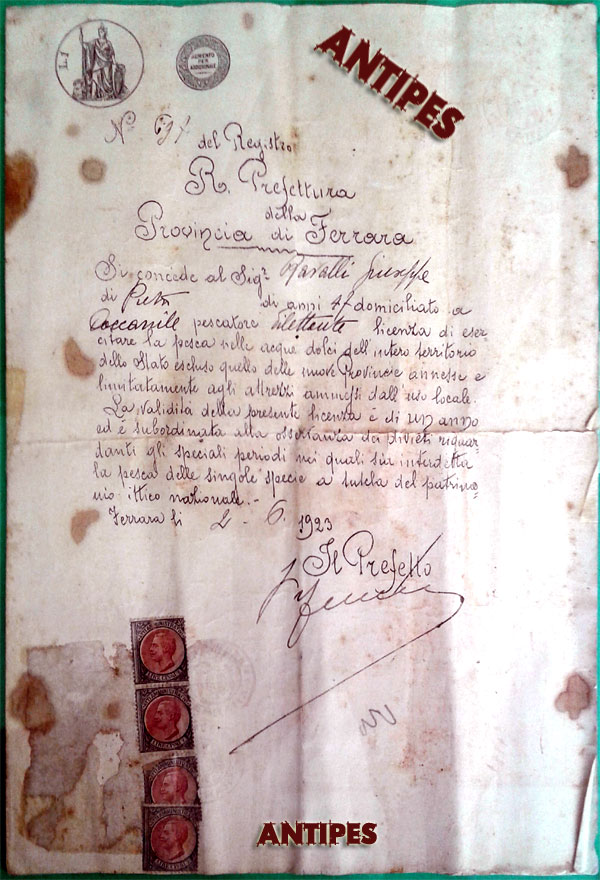 L. 1
AUMENTO
PER
ADDIZIONALE
ANTIPES
N.º 91 del Registro
R. Prefettura
della
Provincia di Ferrara
Si concede al Sig.r Ravalli Giuseppe
di di anni domiciliato a
Coccanile pescatore dilettante licenza di eser
citare la pesca nelle acque dolci dell'intero territorio
dello Stato escluso quello delle nuove provincie annesse e
limitatamente agli attrezzi ammessi dall'uso locale.
La validità della presente licenza è di un anno
ed è subordinata alla osservanza dei divieti riguar
danti gli speciali periodi nei quali sia interdetta
la pesca delle singole specie a tutela del patrimo=
nio ittico nazionale.-
Ferrara li 2 - 6 1923
Il Prefetto
ANTIPES